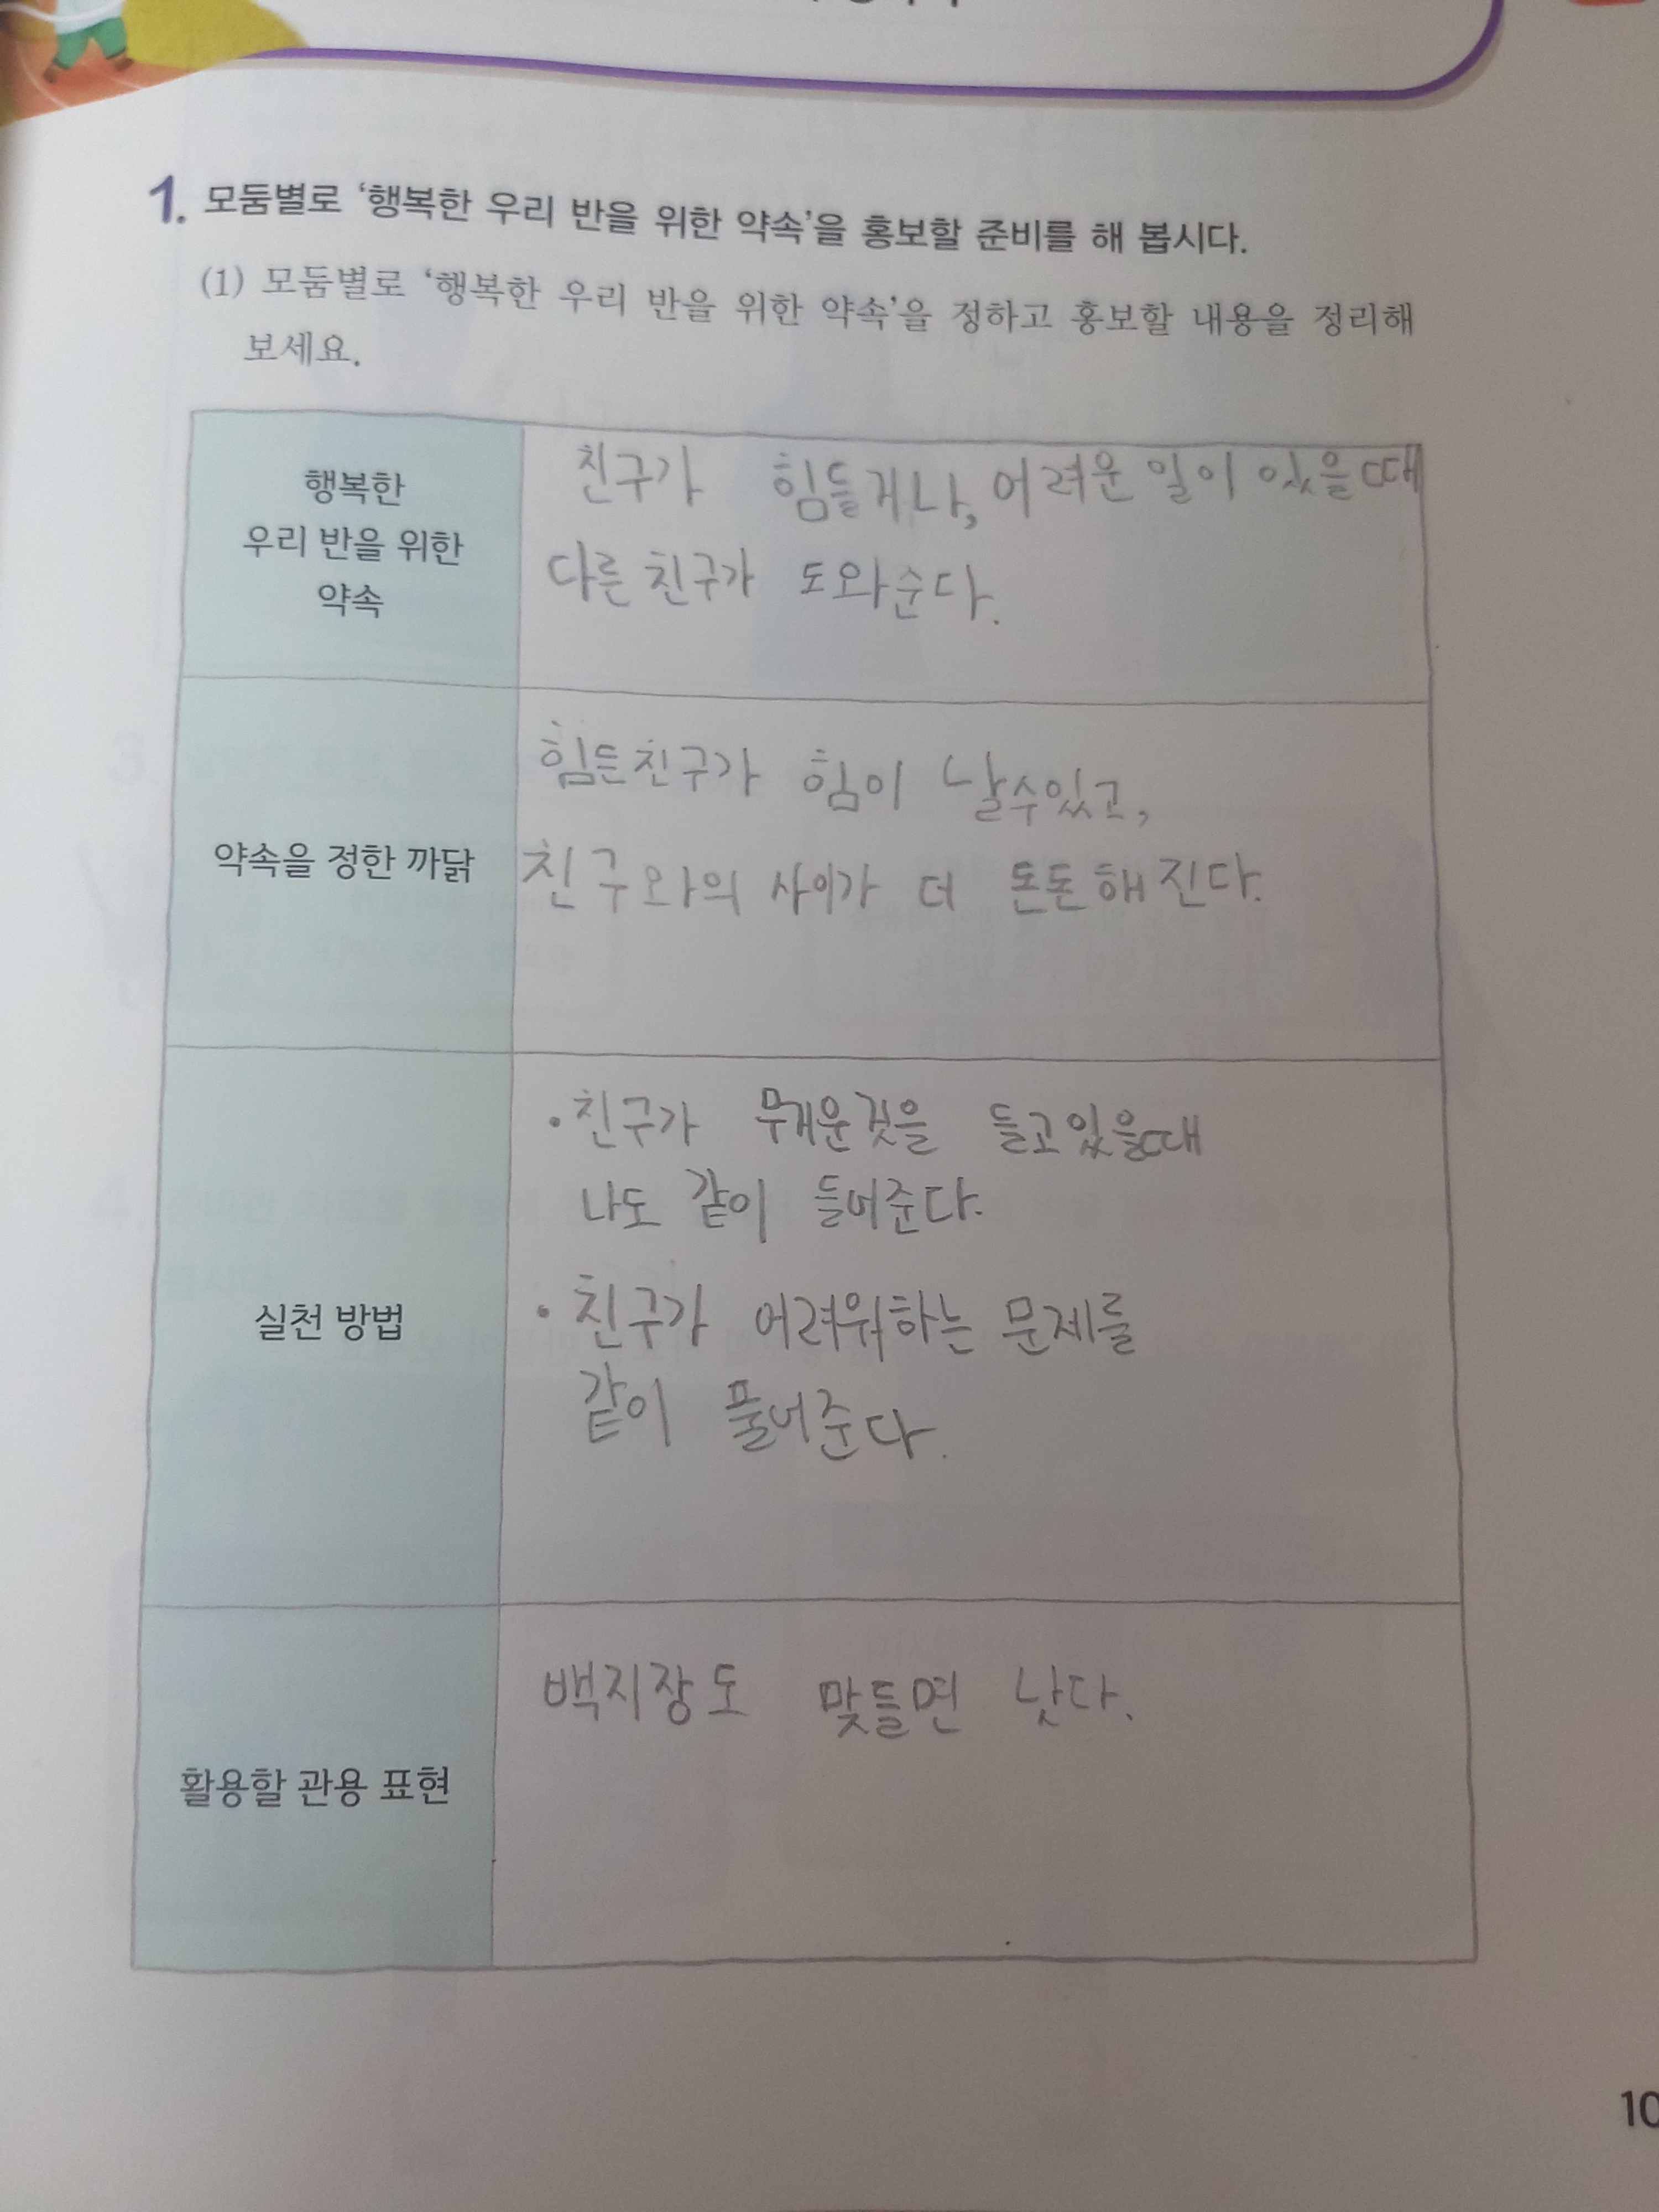 1. 모둠별로 ‘행복한 우리 반을 위한 약속’을 홍보할 준비를 해 봅시다.
(1) 모둠별로 ‘행복한 우리 반을 위한 약속’을 정하고 홍보할 내용을 정리해
보세요.
행복한
우리 반을 위한
약속
친구가 힘들거나, 어려운 일이 있을때
다른 친구가 도와준다.
약속을 정한 까닭
힘든친구가 힘이 날수있고,
친구와의 사이가 더 돈돈해진다.
실천 방법
• 친구가 무거운것을 들고있을때
나도 같이 들어준다.
• 친구가 어려워하는 문제를
같이 풀어준다.
활용할 관용 표현
백지장도 맞들면 낫다.
10